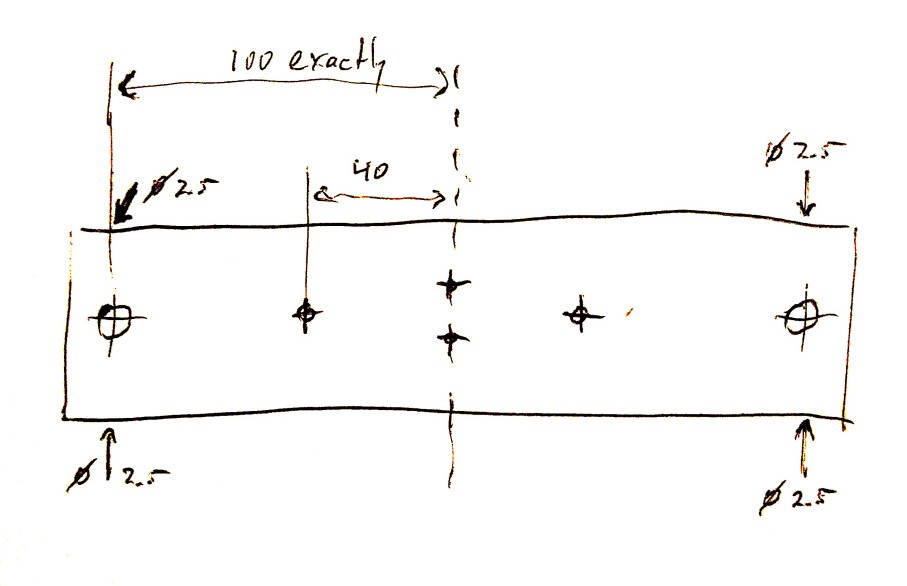 100 exactly
40
ø2.5
ø 2.5
ø 2.5
ø 2.5